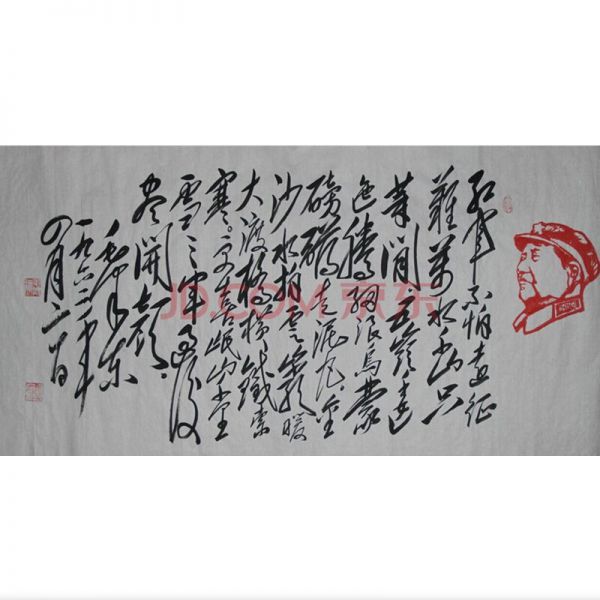 红軍不怕遠征
難萬水千山只
等閒五嶺逶
迤騰細浪烏蒙
磅礴走泥丸。金
沙水拍雲崖暖
大渡橋橫鐵索
寒。更喜岷山千里
雪三軍過後
盡開顏.
毛澤東
一九六二年
四月二十日
JD.COM 京东